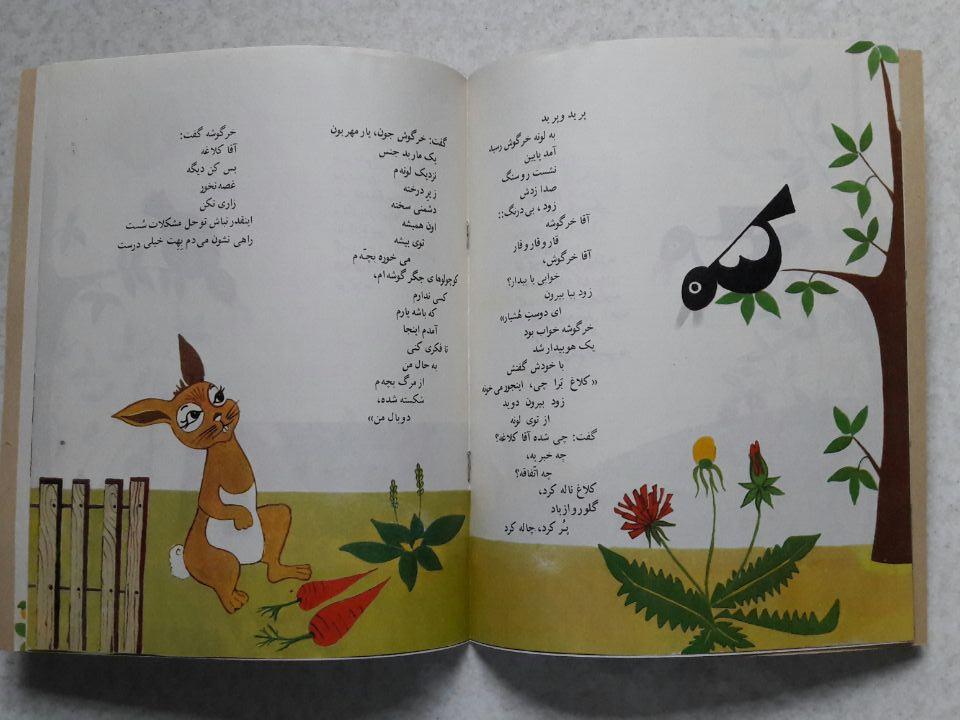 پرید و پرید
به لونه خرگوش رسید
آمد پایین
نشست رو سنگ
صدا زدش
زود، بی‌درنگ::
آقا خرگوشه
قار و قار و قار
آقا خرگوش،
خوابی یا بیدار؟
زود بیا بیرون
ای دوستِ هُشیار»
خرگوشه خواب بود
یک هو بیدار شد
با خودش گفتش
«کلاغ چرا چی، اینجور می‌خونه»
زود بیرون دوید
از توی لونه
گفت: چی شده آقا کلاغه؟
چه خبر یه،
چه اتّفاقه؟
کلاغ ناله کرد،
گلور و از باد
پُر کرد، چاله کرد
گفت: خرگوش جون، یار مهربون
یک مار بد جنس
نزدیک لونه‌م
زیر درخته
دشمنی سخته
اون همیشه
توی بیشه
می خوره بچّه‌م
کوچولوهای جگر گوشه‌ام،
کسی ندارم
که باشه یارم
آمدم اینجا
تا فکری کنی
به حال من
از مرگ بچه‌م
شکسته شده،
دو بال من»
خرگوشه گفت:
آقا کلاغه
بس کن دیگه
غصه نخور
زاری نکن
اینقدر نباش تو حل مشکلات سُست
راهی نشون می‌دم بهت خیلی درست